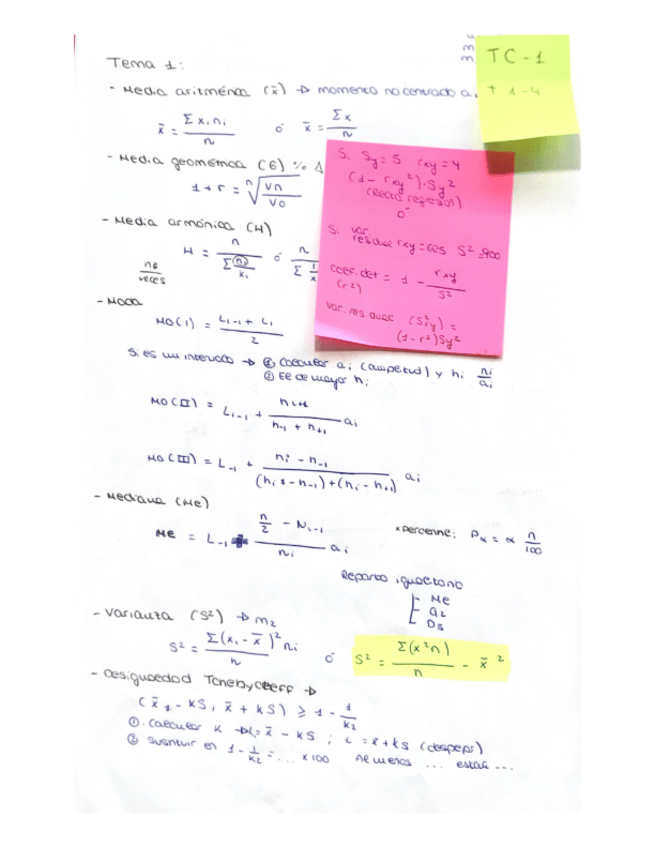 TC - 1
T 1-4
Tema 1:
- Media aritmética (x̄) → momento no centrado a
x̄ = Σ xi ni / n ó x̄ = Σx / n
- Media geométrica (G) %
1 + r = ⁿ√(Vn / V0)
- Media armónica (H)
H = n / Σ ni/xi ó n / Σ 1/x
nº veces
- Moda
MO(I) = (Li-1 + Li) / 2
Si es un intervalo → ① Calcular ai (amplitud) y hi ni/ai
② El de mayor hi
MO(II) = Li-1 + hi+1 / (h-1 + h+1) ai
MO(III) = L-1 + (hi - h-1) / ((hi - h-1) + (hi - h+1)) ai
- Mediana (Me)
Me = L-1 + (n/2 - Ni-1) / ni ai
* percentie: Pα = α n/100
Reparto igualitario
Me
Q2
D5
- Varianza (S²) → m2
S² = Σ(xi - x̄)² ni / n ó S² = Σ(x²n) / n - x̄²
- Desigualdad Tchebycheff →
(x̄ - KS, x̄ + KS) ≥ 1 - 1/K2
①. Calcular K → L = x̄ - KS ; L = x̄ + KS (despejar)
② Sustituir en 1 - 1/K2 = ... x100 Al menos ... están ...
Si Sy = 5 rxy = 4
(1 - rxy²) · Sy²
(Recta regresión)
ó
Si var. residual rxy = S² = 900
coef. det = 1 - rxy / S²
(r²)
Var. residual (S²ry) =
(1 - r²) Sy²